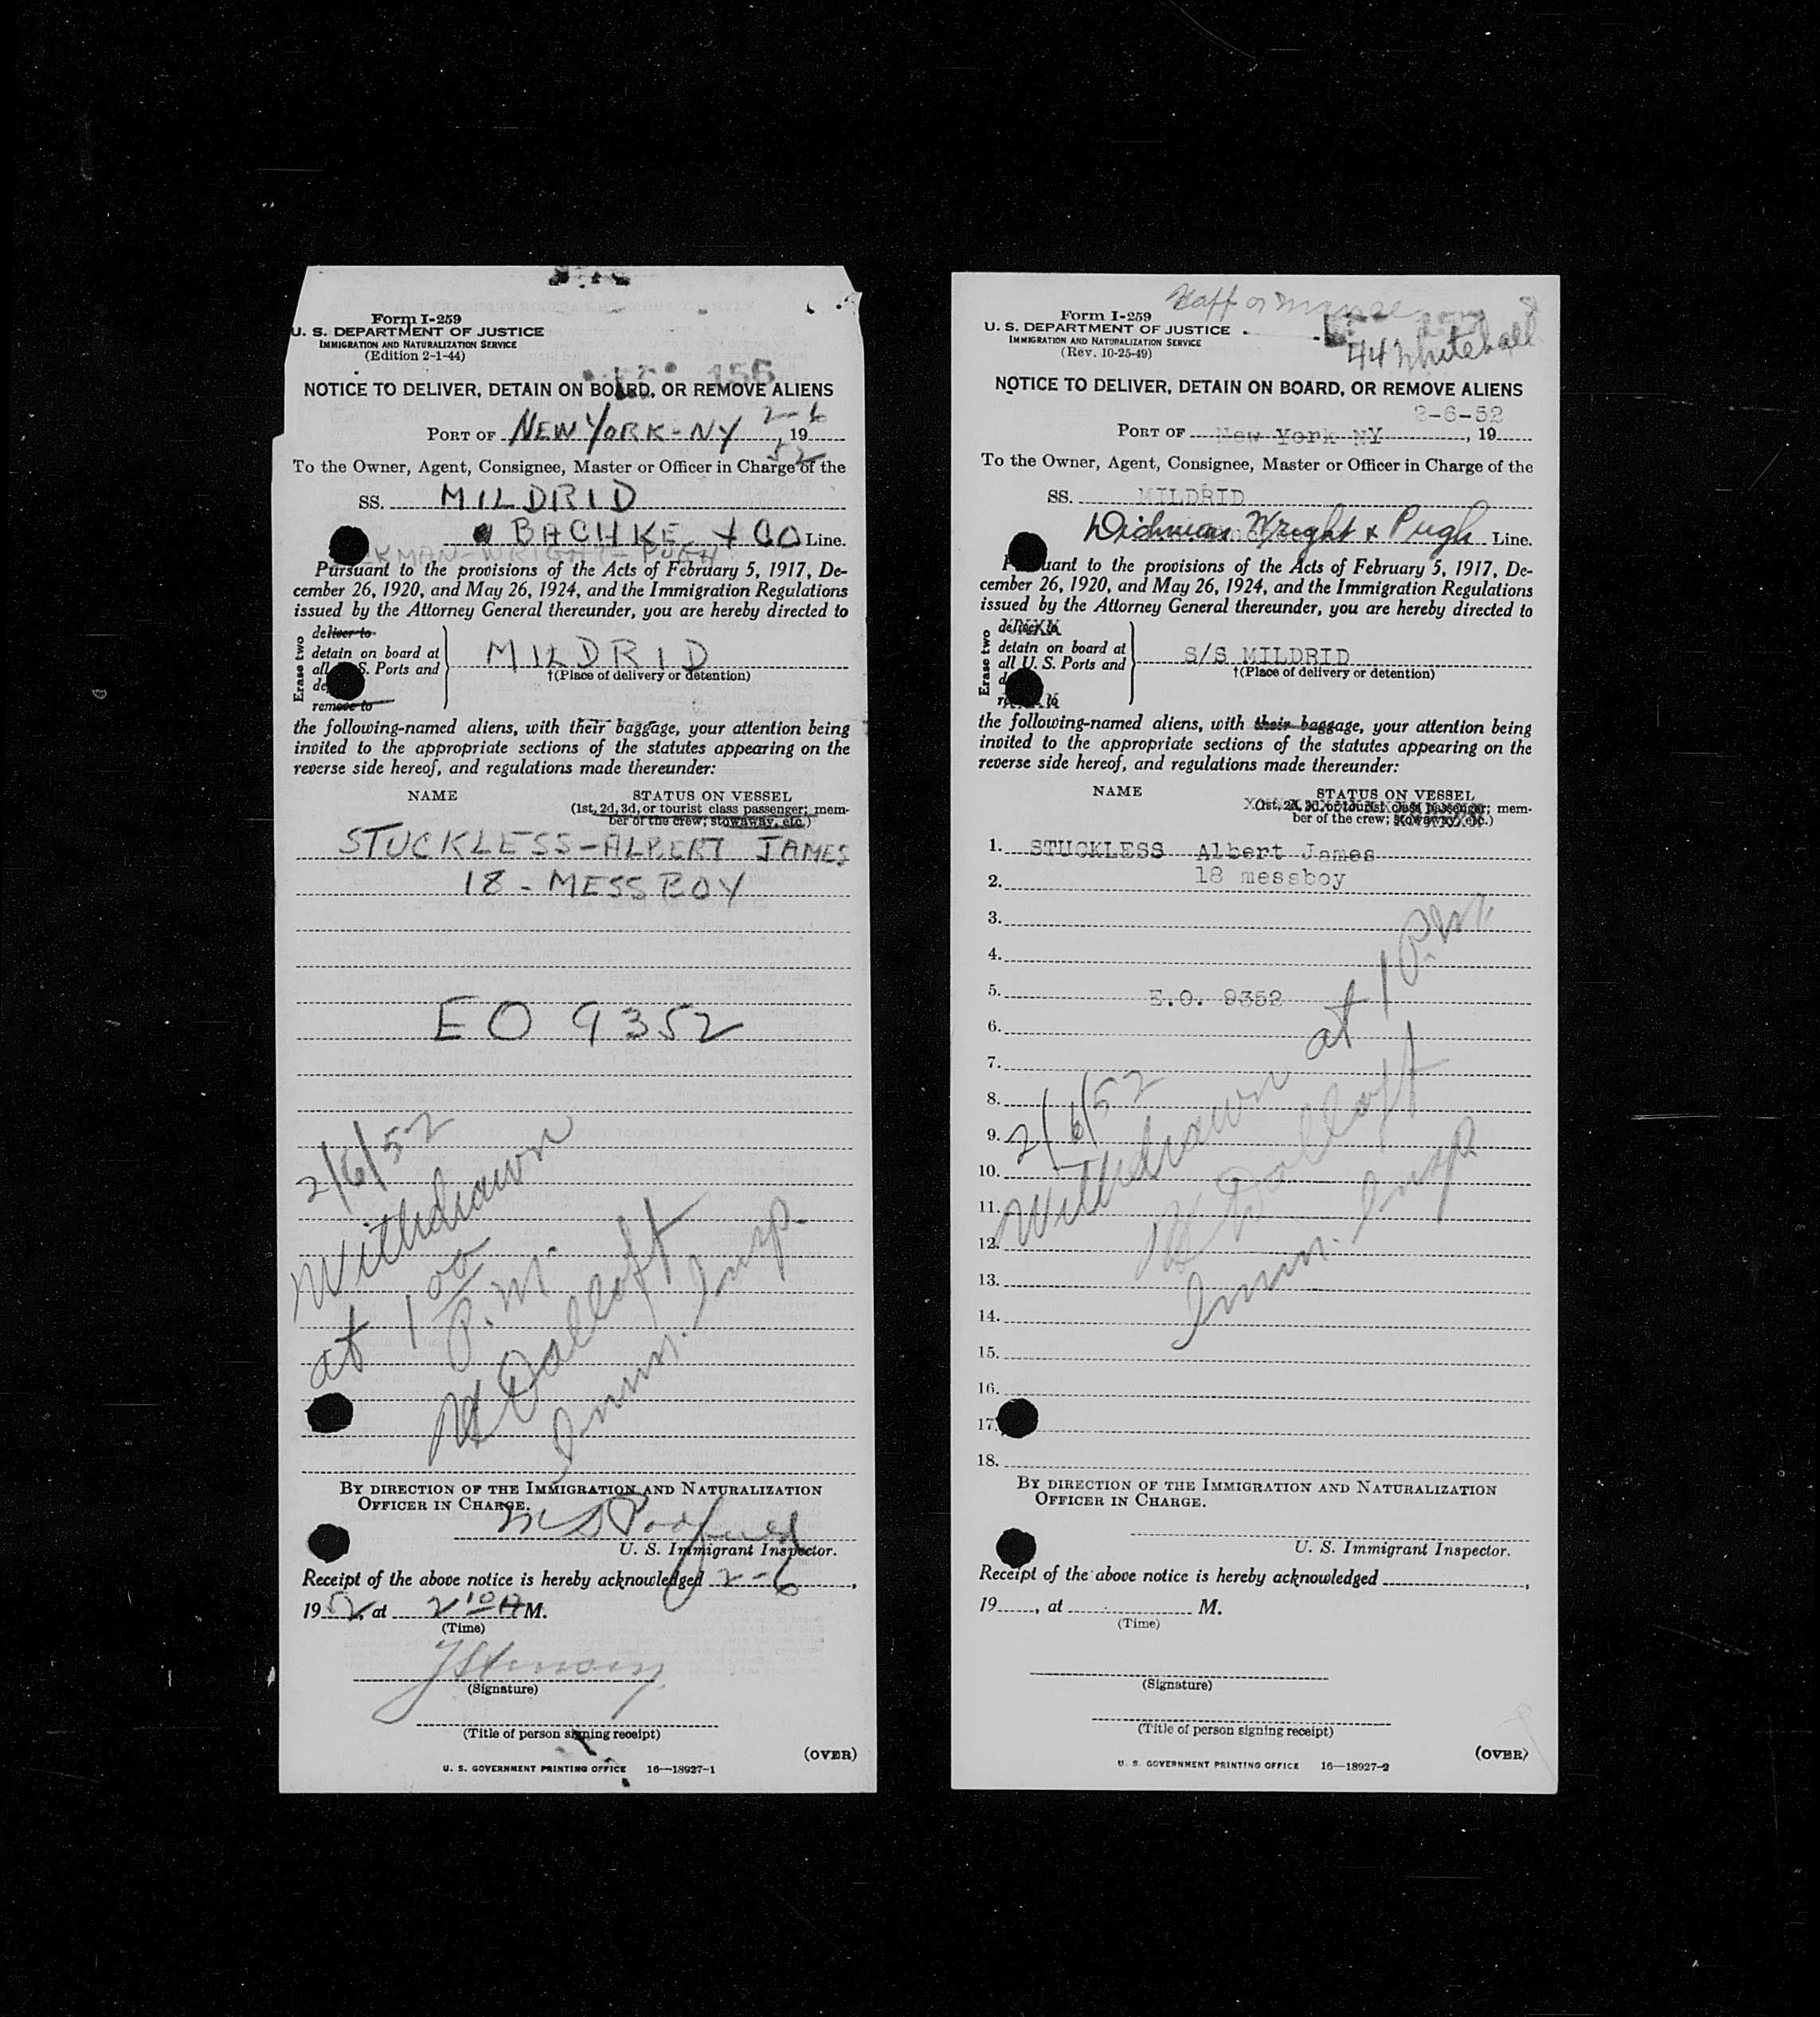 Form I-259
U. S. DEPARTMENT OF JUSTICE
IMMIGRATION AND NATURALIZATION SERVICE
(Edition 2-1-44)
156
NOTICE TO DELIVER, DETAIN ON BOARD, OR REMOVE ALIENS
2-6
PORT OF NEW YORK-NY , 19
52
To the Owner, Agent, Consignee, Master or Officer in Charge of the
SS. MILDRID
BACHKE + CO Line.
KMAN-WRIGHT-PUGH
Pursuant to the provisions of the Acts of February 5, 1917, De-
cember 26, 1920, and May 26, 1924, and the Immigration Regulations
issued by the Attorney General thereunder, you are hereby directed to
Erase two
deliver to
detain on board at
all S. Ports and
de
remove to
MILDRID
†(Place of delivery or detention)
the following-named aliens, with their baggage, your attention being
invited to the appropriate sections of the statutes appearing on the
reverse side hereof, and regulations made thereunder:
NAME STATUS ON VESSEL
(1st, 2d, 3d, or tourist class passenger; mem-
ber of the crew; stowaway, etc.)
STUCKLESS-ALBERT JAMES
18 - MESSBOY
EO 9352
2/6/52
Withdrawn
at 1 00
P.M.
Imm. Insp.
BY DIRECTION OF THE IMMIGRATION AND NATURALIZATION
OFFICER IN CHARGE.
U. S. Immigrant Inspector.
Receipt of the above notice is hereby acknowledged 2-6,
1952, at 2 10 A M.
(Time)
(Signature)
(Title of person signing receipt)
(OVER)
U. S. GOVERNMENT PRINTING OFFICE 16—18927-1
Form I-259
U. S. DEPARTMENT OF JUSTICE
IMMIGRATION AND NATURALIZATION SERVICE
(Rev. 10-25-49)
44 Whitehall
NOTICE TO DELIVER, DETAIN ON BOARD, OR REMOVE ALIENS
2-6-52
PORT OF New York NY , 19
To the Owner, Agent, Consignee, Master or Officer in Charge of the
SS. MILDRID
Wright & Pugh Line.
uant to the provisions of the Acts of February 5, 1917, De-
cember 26, 1920, and May 26, 1924, and the Immigration Regulations
issued by the Attorney General thereunder, you are hereby directed to
Erase two
deliver to
detain on board at
all U. S. Ports and
d
to
S/S MILDRID
†(Place of delivery or detention)
the following-named aliens, with their baggage, your attention being
invited to the appropriate sections of the statutes appearing on the
reverse side hereof, and regulations made thereunder:
NAME STATUS ON VESSEL
(1st, 2d, 3d, or tourist class passenger; mem-
ber of the crew; stowaway, etc.)
1. STUCKLESS Albert James
2. 18 messboy
3.
4.
5. E.O. 9352
6.
7.
8.
9.
10.
11.
12.
13.
14.
15.
16.
17.
18.
2/6/52
Withdrawn at 1 P.M.
Imm. Insp
BY DIRECTION OF THE IMMIGRATION AND NATURALIZATION
OFFICER IN CHARGE.
U. S. Immigrant Inspector.
Receipt of the above notice is hereby acknowledged ,
19 , at M.
(Time)
(Signature)
(Title of person signing receipt)
(OVER)
U. S. GOVERNMENT PRINTING OFFICE 16—18927-2